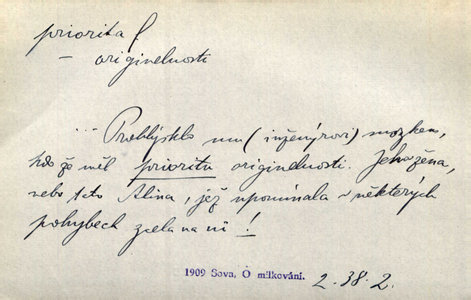 priorita f.
– originelnosti
... Problýsklo mu (inženýrovi) mozkem,
kdože měl prioritu originelnosti. Jeho žena,
nebo tato Alina, jež upomínala v některých
pohybech zcela na ni!
1909 Sova, O milkování. 2. 38. 2.